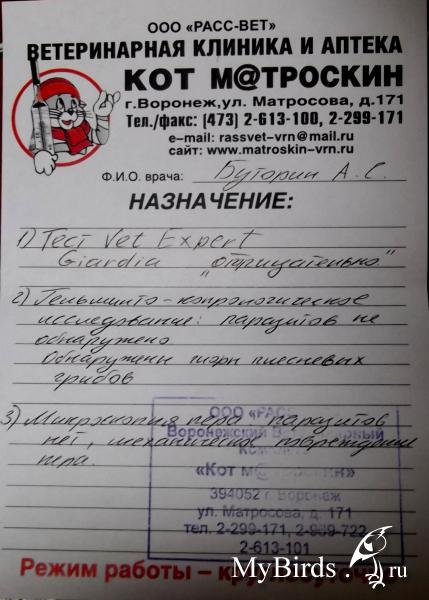 ООО «РАСС-ВЕТ»
ВЕТЕРИНАРНАЯ КЛИНИКА И АПТЕКА
КОТ М@ТРОСКИН
г.Воронеж,ул. Матросова, д.171
Тел./факс: (473) 2-613-100, 2-299-171
e-mail: rassvet-vrn@mail.ru
сайт: www.matroskin-vrn.ru
Ф.И.О. врача: Буторин А. С.
НАЗНАЧЕНИЕ:
1) Тест Vet Expert
Giardia „отрицательно"
2) Гельминто-копрологическое
исследование: паразитов не
обнаружено
Обнаружены споры плесневых
грибов
3) Микроскопия пера: паразитов
нет, механическое повреждение
пера.
ООО «РАСС-
Воронежский
«Кот м@троскин»
394052 г. Воронеж
ул. Матросова, д. 171
тел. 2-299-171, 2-969-722
2-613-101
Режим работы – круглосуточно
MyBirds.ru